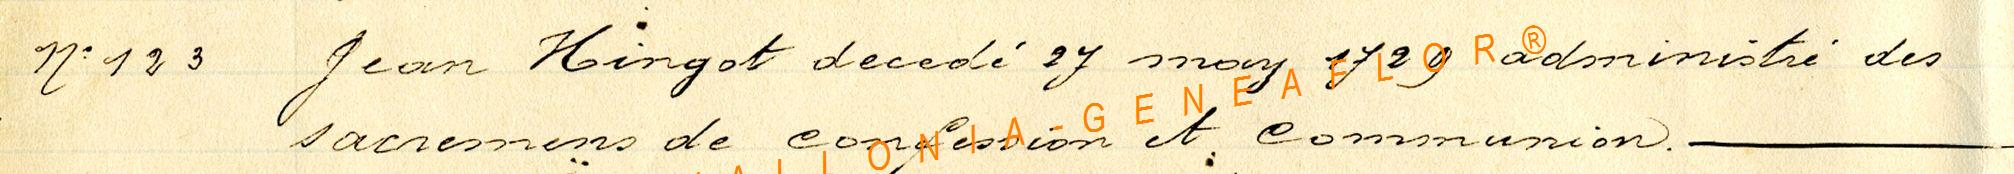 N° 123 Jean Hingot decedé 27 may 1729 administré des
sacremens de confession et communion.
ALLONIA-GENEAFLOR®